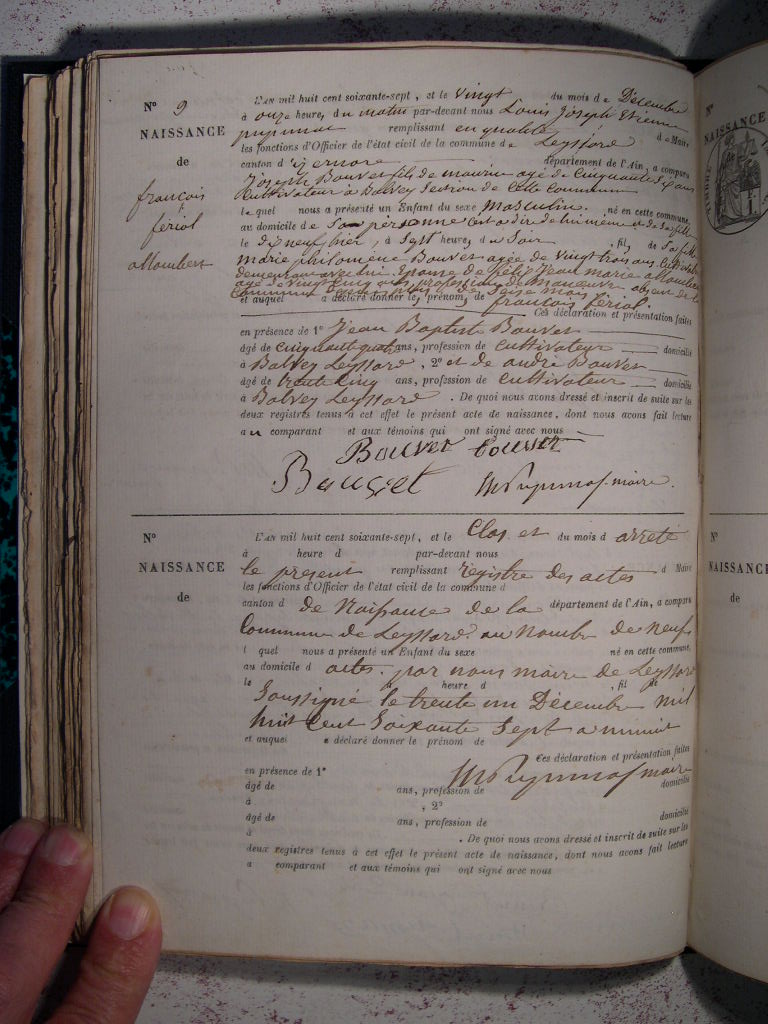 N° 9
NAISSANCE
de
françois
fériol
allombert
L'AN mil huit cent soixante-sept, et le vingt du mois de Décembre
à onze heure, du matin par-devant nous Louis Joseph Etienne
remplissant en qualité de Maire
les fonctions d'Officier de l'état civil de la commune de Leyssard
canton d'izernore département de l'Ain, a comparu
Joseph Bouvet fils de maurin agé de Cinquante Six ans
Cultivateur à Balvey Section de Cette Commune
lequel nous a présenté un Enfant du sexe Masculin né en cette commune,
au domicile de Sa personne C'est a dire de lui même et de sa fille
le dixneuf hier, à Sept heure, du Soir, fil de Sa fille
marie philomène Bouvet agée de vingt trois ans Cultivatrice
demeurant avec lui. Epouse de félix Jean marie allombert
agé de vingt Cinq ans, profession de manœuvre absent de la
Commune
et auquel a déclaré donner le prénom de françois fériol.
Ces déclaration et présentation faites
en présence de 1° Jean Baptiste Bouvet
âgé de cinquante quatre ans, profession de Cultivateur domicilié
à Balvey Leyssard, 2° et de andré Bouvet
âgé de trente Cinq ans, profession de Cultivateur domicilié
à Balvey Leyssard. De quoi nous avons dressé et inscrit de suite sur les
deux registres tenus à cet effet le présent acte de naissance, dont nous avons fait lecture
au comparant et aux témoins qui ont signé avec nous
Bouvet bouvet
Bouvet maire.
N°
NAISSANCE
de
L'AN mil huit cent soixante-sept, et le Clos et du mois d arrêté
à heure d par-devant nous
le présent remplissant registre des actes d Maire
les fonctions d'Officier de l'état civil de la commune d
canton d de Naissance de la département de l'Ain, a comparu
Commune de Leyssard au Nombre de Neuf
l quel nous a présenté un Enfant du sexe né en cette commune,
au domicile d actes. par nous maire de Leyssard
le à heure d, fil de
Soussigné le trente un Décembre mil
huit Cent Soixante Sept a minuit
et auquel a déclaré donner le prénom de
Ces déclaration et présentation faites
maire
en présence de 1° domicilié
âgé de ans, profession de
à , 2° domicilié
âgé de ans, profession de
à . De quoi nous avons dressé et inscrit de suite sur les
deux registres tenus à cet effet le présent acte de naissance, dont nous avons fait lecture
a comparant et aux témoins qui ont signé avec nous
N°
NAISSANCE
de
TIMBRE
N°
NAISSANCE
de